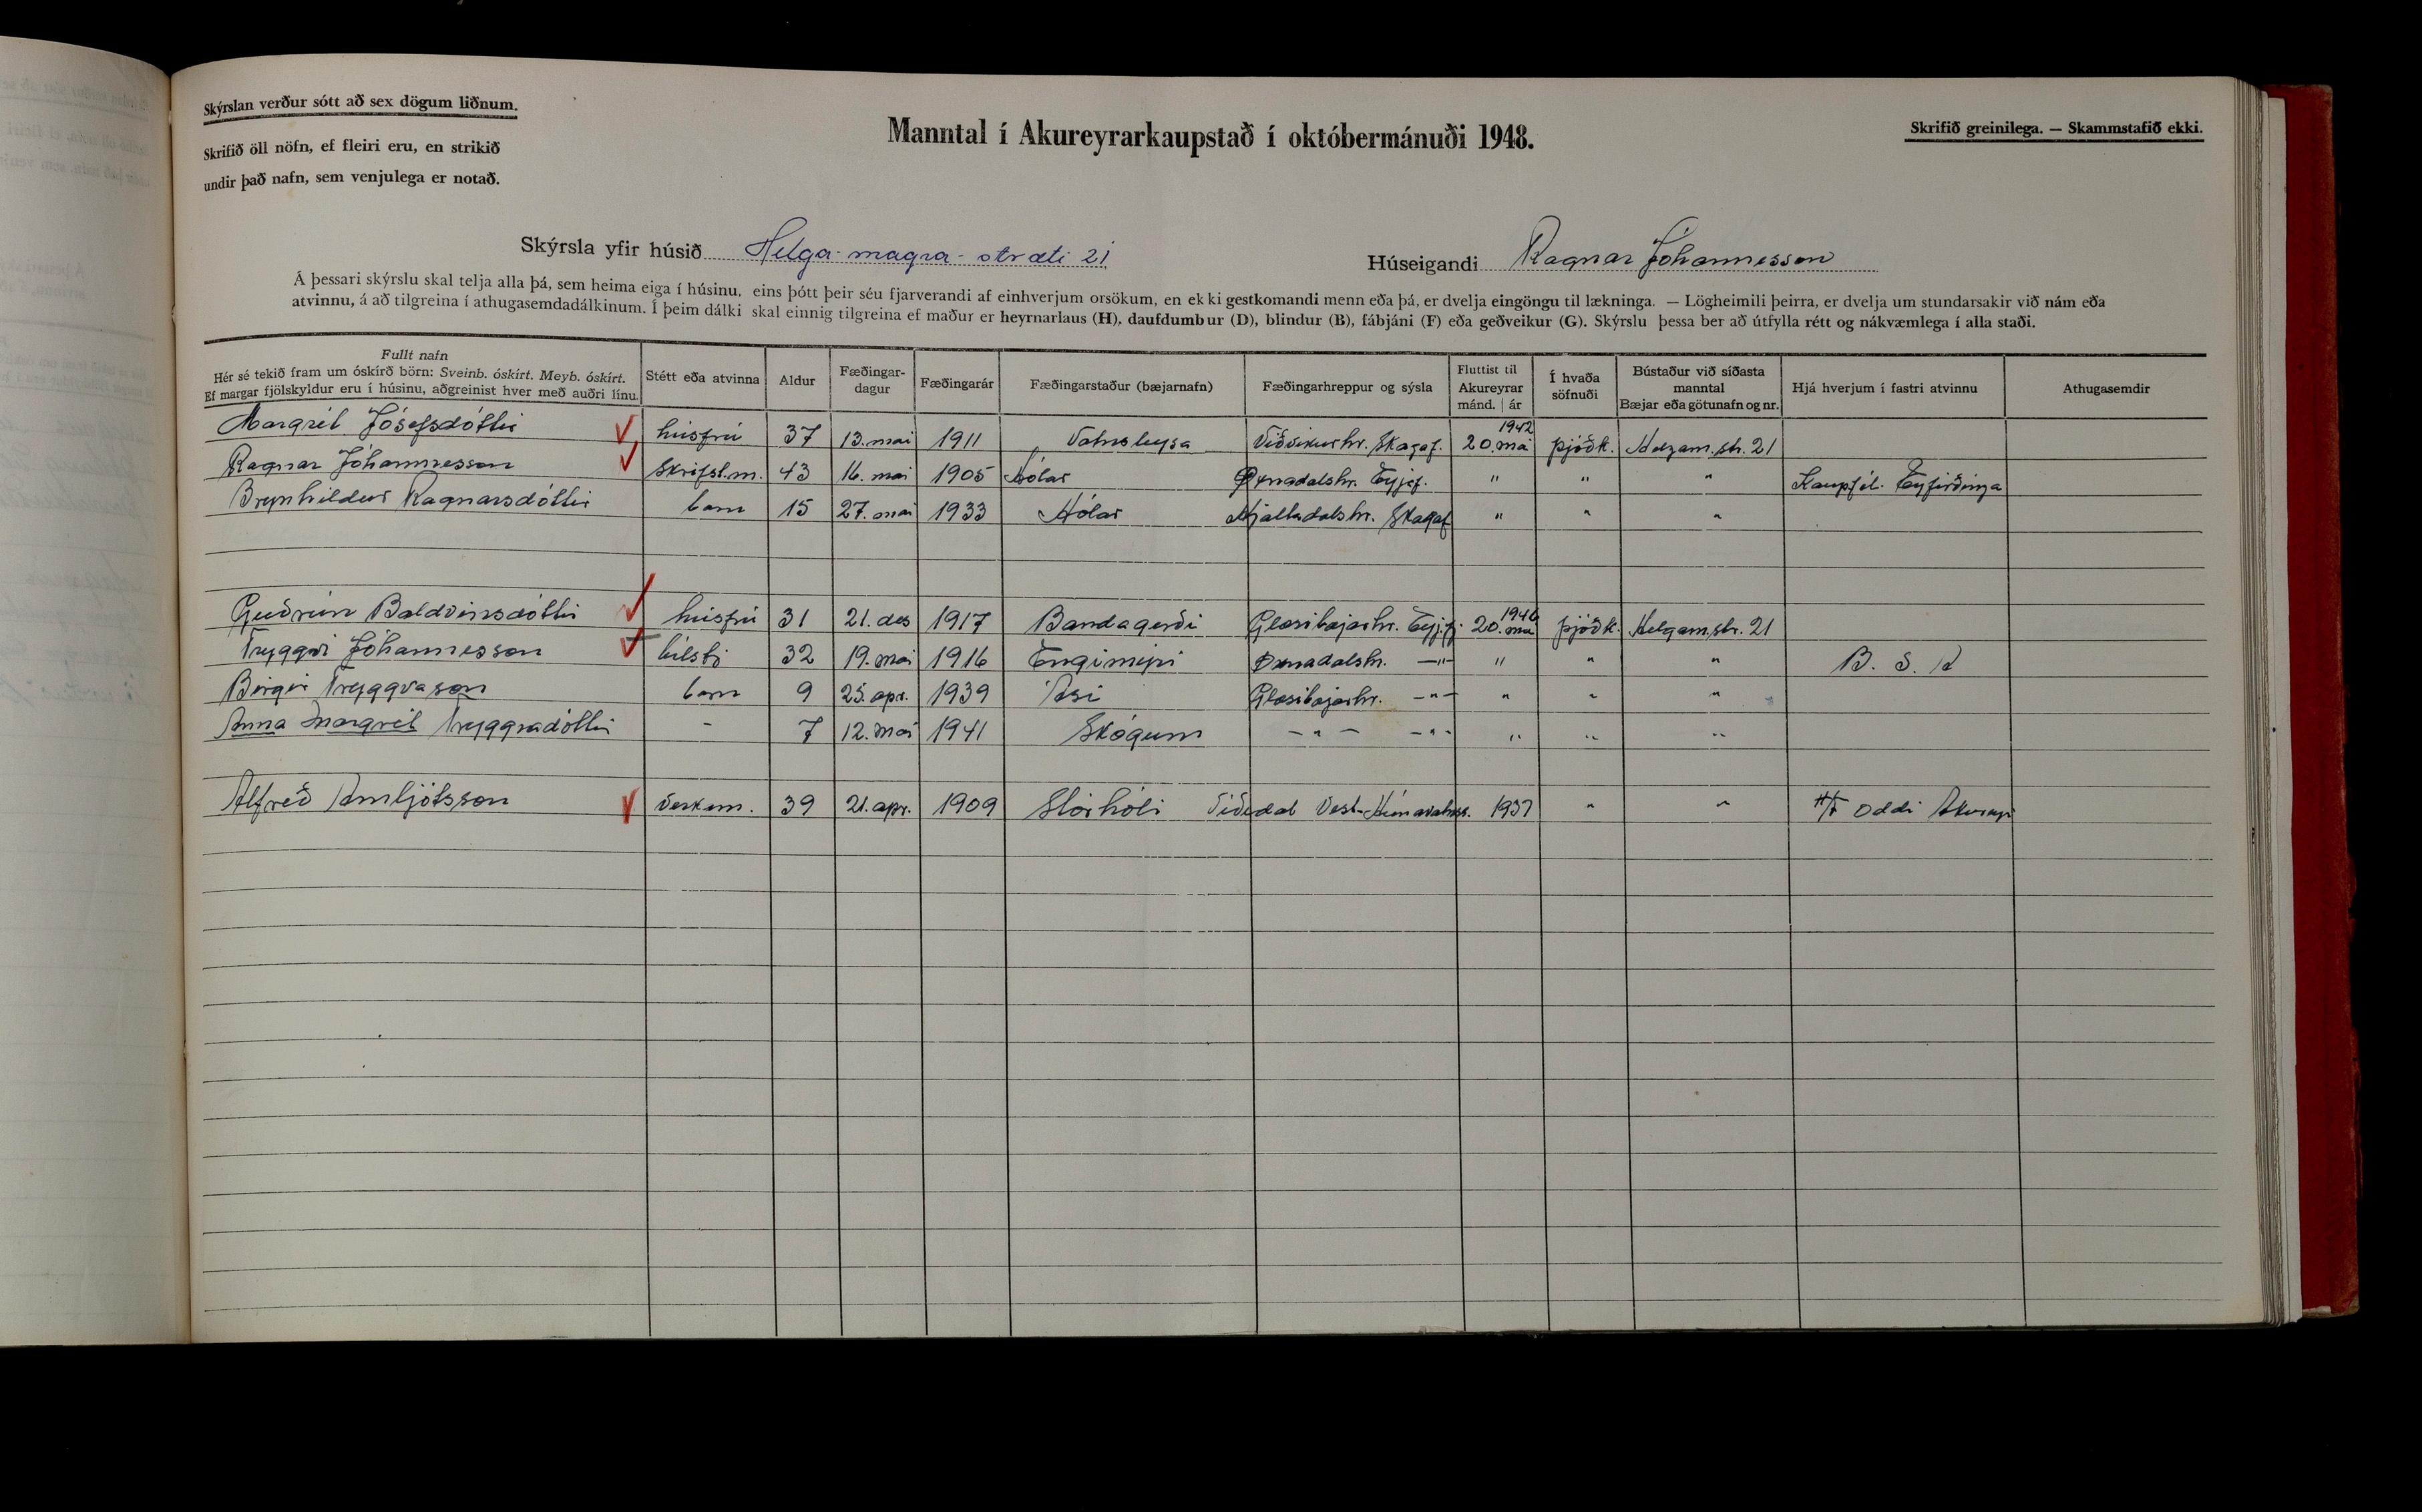 Skýrslan verður sótt að sex dögum liðnum.
Skrifið öll nöfn, ef fleiri eru, en strikið
undir það nafn, sem venjulega er notað.
Manntal í Akureyrarkaupstað í októbermánuði 1948.
Skrifið greinilega. — Skammstafið ekki.
Skýrsla yfir húsið Helga-magra-stræti 21
Húseigandi Ragnar Jóhannesson
Á þessari skýrslu skal telja alla þá, sem heima eiga í húsinu, eins þótt þeir séu fjarverandi af einhverjum orsökum, en ekki gestkomandi menn eða þá, er dvelja eingöngu til lækninga. — Lögheimili þeirra, er dvelja um stundarsakir við nám eða
atvinnu, á að tilgreina í athugasemdadálkinum. Í þeim dálki skal einnig tilgreina ef maður er heyrnarlaus (H), daufdumbur (D), blindur (B), fábjáni (F) eða geðveikur (G). Skýrslu þessa ber að útfylla rétt og nákvæmlega í alla staði.
Fullt nafn
Hér sé tekið fram um óskírð börn: Sveinb. óskírt. Meyb. óskírt.
Ef margar fjölskyldur eru í húsinu, aðgreinist hver með auðri línu.
Stétt eða atvinna
Aldur
Fæðingar-
dagur
Fæðingarár
Fæðingarstaður (bæjarnafn)
Fæðingarhreppur og sýsla
Fluttist til
Akureyrar
mánd. | ár
Í hvaða
söfnuði
Bústaður við síðasta
manntal
Bæjar eða götunafn og nr.
Hjá hverjum í fastri atvinnu
Athugasemdir
Margrét Jósefsdóttir húsfrú 37 13. maí 1911 Vatnsleysa Viðvíkurhr. Skagaf. 20. maí 1942 þjóðk. Helgam.str. 21
Ragnar Jóhannesson Skrifst.m. 43 16. maí 1905 Hólar Öxnadalshr. Eyjf. " " " Kaupfél. Eyfirðinga
Brynhildur Ragnarsdóttir barn 15 27. maí 1933 Hólar Hjaltadalshr. Skagaf " " "
Guðrún Baldvinsdóttir húsfrú 31 21. des 1917 Bandagerði Glæsibæjarhr. Eyjfj. 20. maí 1946 þjóðk. Helgam.str. 21
Tryggvi Jóhannesson bílstj 32 19. maí 1916 Engimýri Öxnadalshr. —"— " " " B. S. A
Birgir Tryggvason barn 9 25. apr. 1939 Ási Glæsibæjarhr. —"— " " "
Anna Margrét Tryggvadóttir - 7 12. maí 1941 Skógum —"— —"— " " "
Alfreð Arnljótsson Verkam. 39 21. apr. 1909 Stórhóli Víðidal Vest-Húnavatnss. 1937 " " H/F Oddi Akureyri